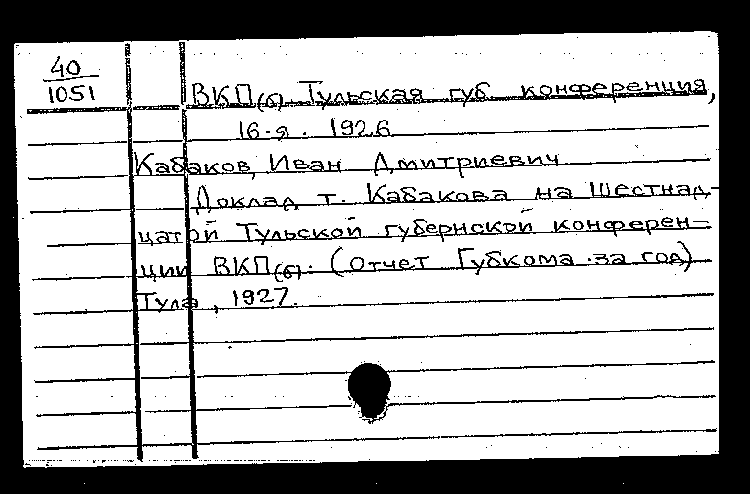 40
1051
ВКП(б) Тульская губ. конференция,
16-я. 1926
Кабаков, Иван Дмитриевич
Доклад т. Кабакова на Шестнад-
цатой Тульской губернской конферен-
ции ВКП(б). (Отчет Губкома за год)
Тула, 1927.